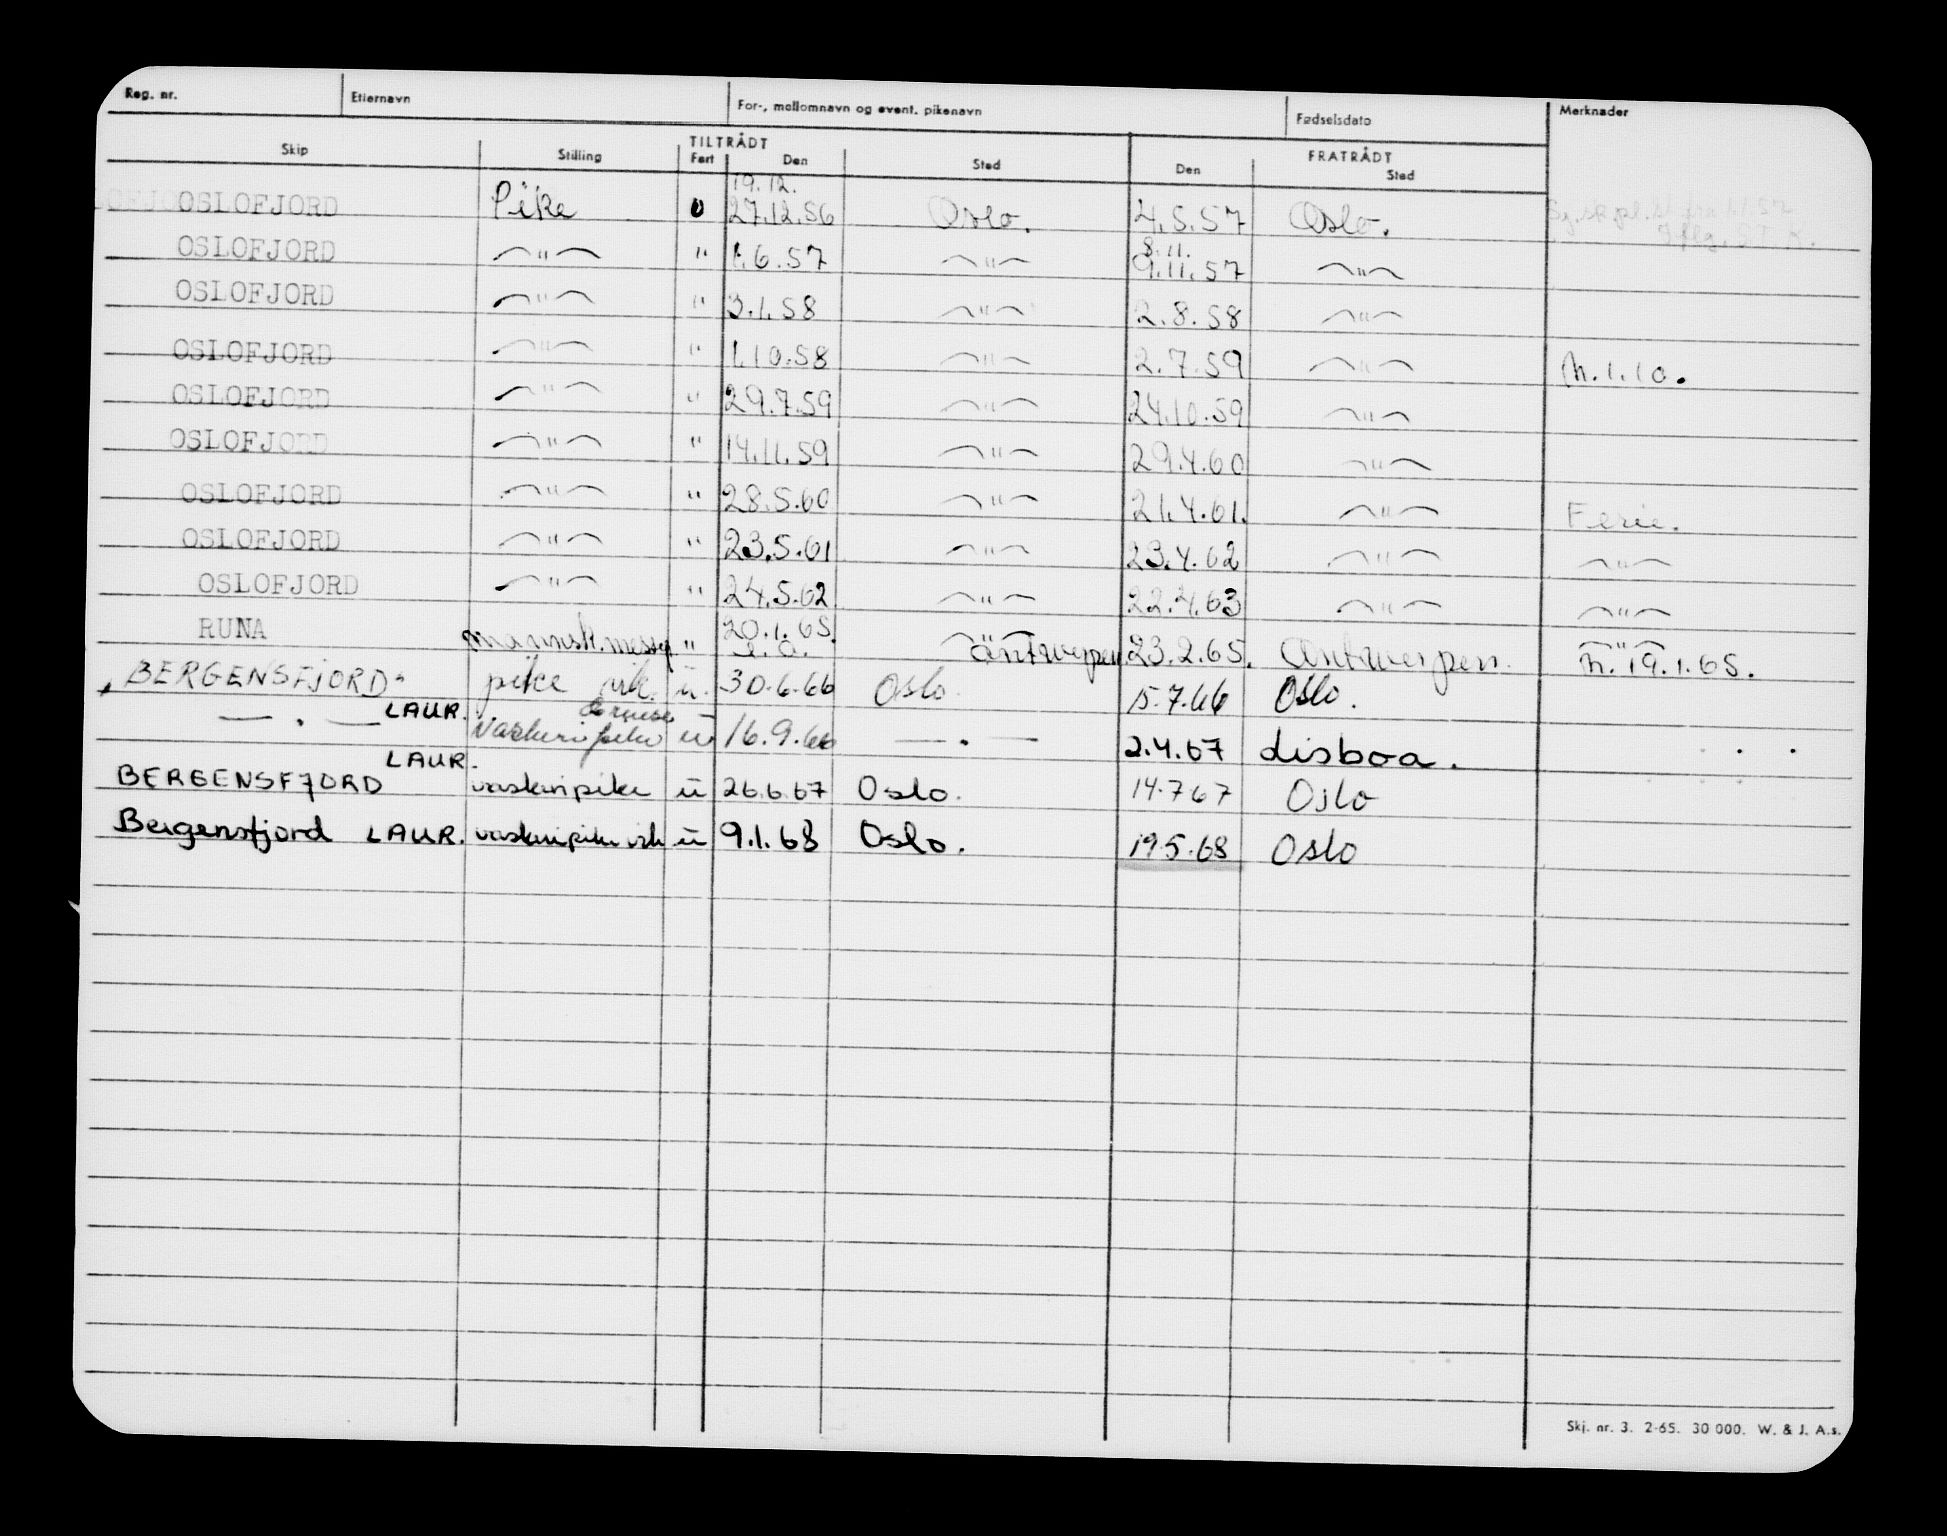 Reg. nr. Etternavn For-, mellomnavn og event. pikenavn Fødselsdato Merknader
TILTRÅDT FRATRÅDT
Skip Stilling Fart Den Sted Den Sted
19.12.
OSLOFJORD Pike u 27.12.56 Oslo. 4.5.57 Oslo.
8.11.
OSLOFJORD " " 1.6.57 " 9.11.57 "
OSLOFJORD " " 3.1.58 " 2.8.58 "
OSLOFJORD " " 1.10.58 " 2.7.59 " M.1.10.
OSLOFJORD " " 29.7.59 " 24.10.59 "
OSLOFJORD " " 14.11.59 " 29.4.60 "
OSLOFJORD " " 28.5.60 " 21.4.61. " Ferie.
OSLOFJORD " " 23.5.61 " 23.4.62 " "
OSLOFJORD " " 24.5.62 " 22.4.63 " "
RUNA mannsk.messeg. " 20.1.65. Antwerpen 23.2.65. Antwerpen. M. 19.1.65.
"BERGENSFJORD" pike vik. u. 30.6.66 Oslo. 15.7.66 Oslo.
— " — LAUR. vaskeripike u 16.9.66 — " — 2.4.67 Lisboa.
LAUR.
BERGENSFJORD vaskeripike u 26.6.67 Oslo. 14.7.67 Oslo
Bergensfjord LAUR. vaskeripike vik u 9.1.68 Oslo. 19.5.68 Oslo
Skj. nr. 3. 2-65. 30 000. W. & J. A.s.